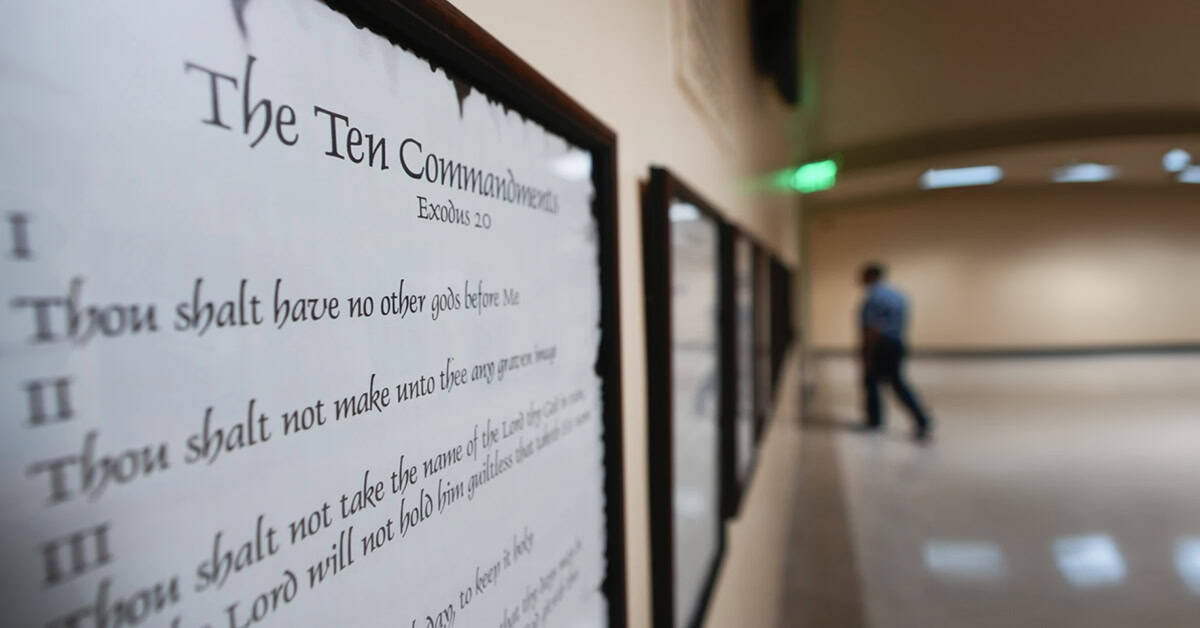 The Ten Commandments
Exodus 20
I
Thou shalt have no other gods before Me
II
Thou shalt not make unto thee any graven image
III
Thou shalt not take the name of the Lord thy God in vain,
Lord will not hold him guiltless that taketh His name
day, to keep it holy
that thy days may be